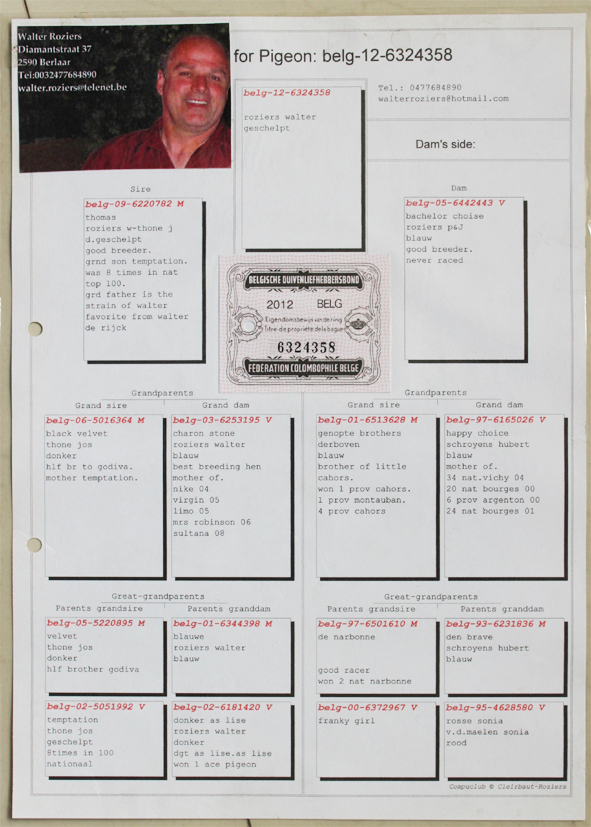 Walter Roziers
Diamantstraat 37
2590 Berlaar
Tel:0032477684890
walter.roziers@telenet.be
for Pigeon: belg-12-6324358
belg-12-6324358
roziers walter
geschelpt
Tel.: 0477684890
walterroziers@hotmail.com
Dam's side:
Sire
belg-09-6220782 M
thomas
roziers w-thone j
d.geschelpt
good breeder.
grnd son temptation.
was 8 times in nat
top 100.
grd father is the
strain of walter
favorite from walter
de rijck
Dam
belg-05-6442443 V
bachelor choise
roziers p&J
blauw
good breeder.
never raced
BELGISCHE DUIVENLIEFHEBBERSBOND
2012 BELG
Eigendomsbewijs van de ring
Titre de propriété de la bague
6324358
FÉDÉRATION COLOMBOPHILE BELGE
Grandparents
Grand sire
Grand dam
belg-06-5016364 M
black velvet
thone jos
donker
hlf br to godiva.
mother temptation.
belg-03-6253195 V
charon stone
roziers walter
blauw
best breeding hen
mother of.
nike 04
virgin 05
limo 05
mrs robinson 06
sultana 08
Grandparents
Grand sire
Grand dam
belg-01-6513628 M
genopte brothers
derboven
blauw
brother of little
cahors.
won 1 prov cahors.
1 prov montauban.
4 prov cahors
belg-97-6165026 V
happy choice
schroyens hubert
blauw
mother of.
34 nat.vichy 04
20 nat bourges 00
6 prov argenton 00
24 nat bourges 01
Great-grandparents
Parents grandsire
Parents granddam
belg-05-5220895 M
velvet
thone jos
donker
hlf brother godiva
belg-01-6344398 M
blauwe
roziers walter
blauw
belg-02-5051992 V
temptation
thone jos
geschelpt
8times in 100
nationaal
belg-02-6181420 V
donker as lise
roziers walter
donker
dgt as lise.as lise
won 1 ace pigeon
Great-grandparents
Parents grandsire
Parents granddam
belg-97-6501610 M
de narbonne
good racer
won 2 nat narbonne
belg-93-6231836 M
den brave
schroyens hubert
blauw
belg-00-6372967 V
franky girl
belg-95-4628580 V
rosse sonia
v.d.maelen sonia
rood
Compuclub © Cleirbaut-Roziers